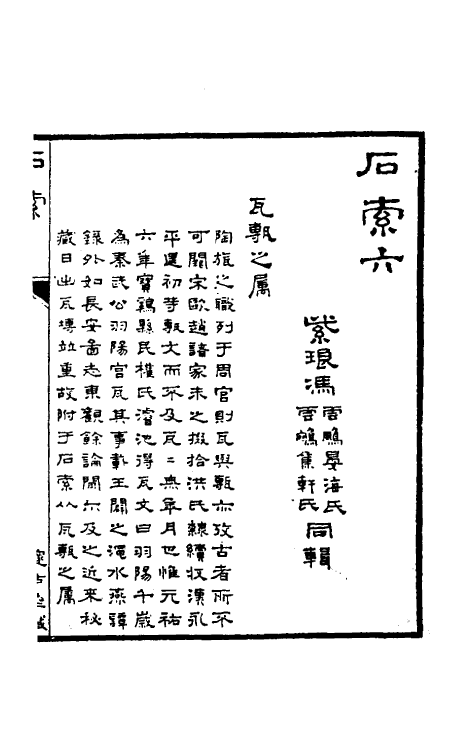 石索六
紫琅馮
雲鵬晏海氏
雲鵷集軒氏
同輯
瓦甎之屬
陶旊之職列于周官則瓦與甎亦攷古者所不
可闕宋歐趙諸家未之掇拾洪氏隸續收漢永
平建初等甎文而不及瓦二無年月也惟元祐
六年寶鷄縣民權氏濬池得瓦文曰羽陽千歲
為秦武公羽陽宮瓦其事載王闢之澠水燕譚
錄外如長安圖志東觀餘論閒亦及之近來秘
藏日出瓦塼竝重故附于石索以瓦甎之屬
石索